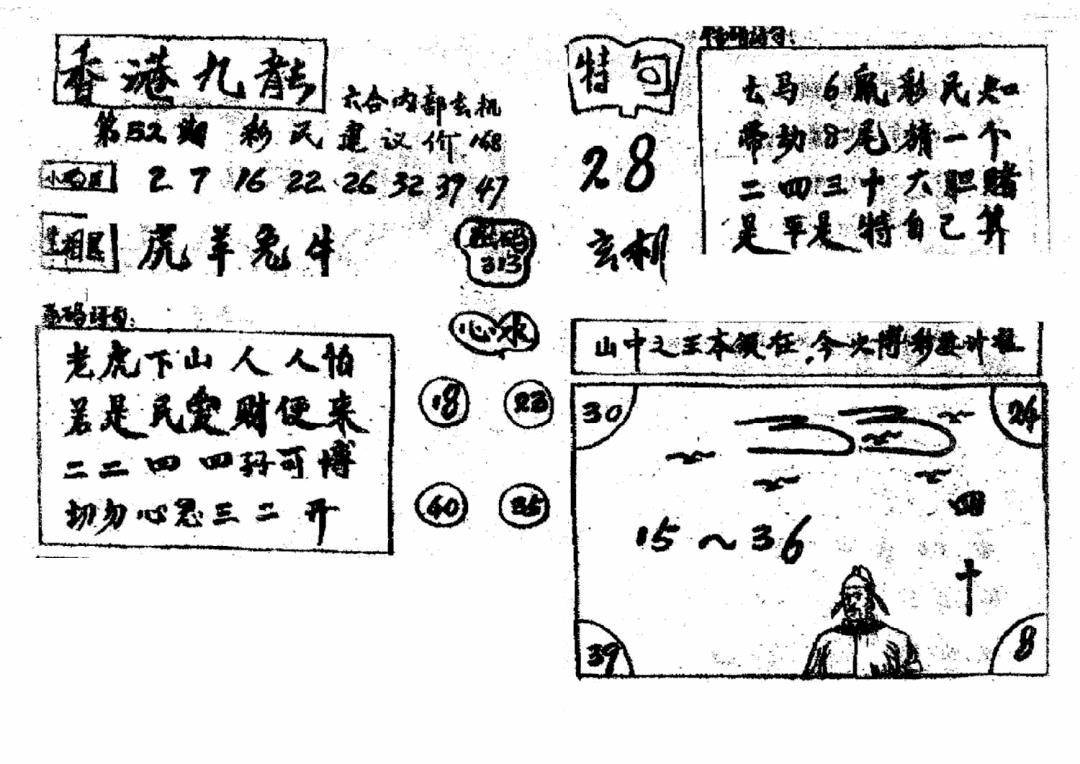 香港九龍
六合内部玄机
第52期 彩民建议价.168
2 7 16 22 26 32 39 47
生相
虎羊兔牛
码
313
心水
18 23
40 35
老虎下山人人怕
若是民爱财便来
二二四四孖可博
切勿心急三二开
特句
28
玄机
马6赢彩民知
带动8尾猜一个
二四三十六胆赌
是平是特自己算
山中之王本领在,今次博彩
30 24
四
15~36
十
39 8